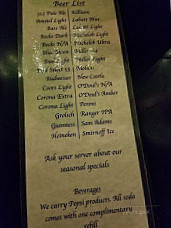 Beer List
312 Pale Ale Killians
Amstel Light Labatt Blue
Bass Ale
Becks Dark Michelob Light
Becks N/A Michelob Ultra
Blue Moon Miller Lite
Bud Light Miller Light
Bud Select 55 Molson
Budweiser New Castle
Coors Light O'Douls N/A
Corona Extra O'Doul's Amber
Corona Light Peroni
Grolsch Ranger IPA
Guinness Sam Adams
Heineken Smirnoff Ice
Ask your server about our
seasonal specials
Beverages
We carry Pepsi products. All soda
comes with one complimentary
refill